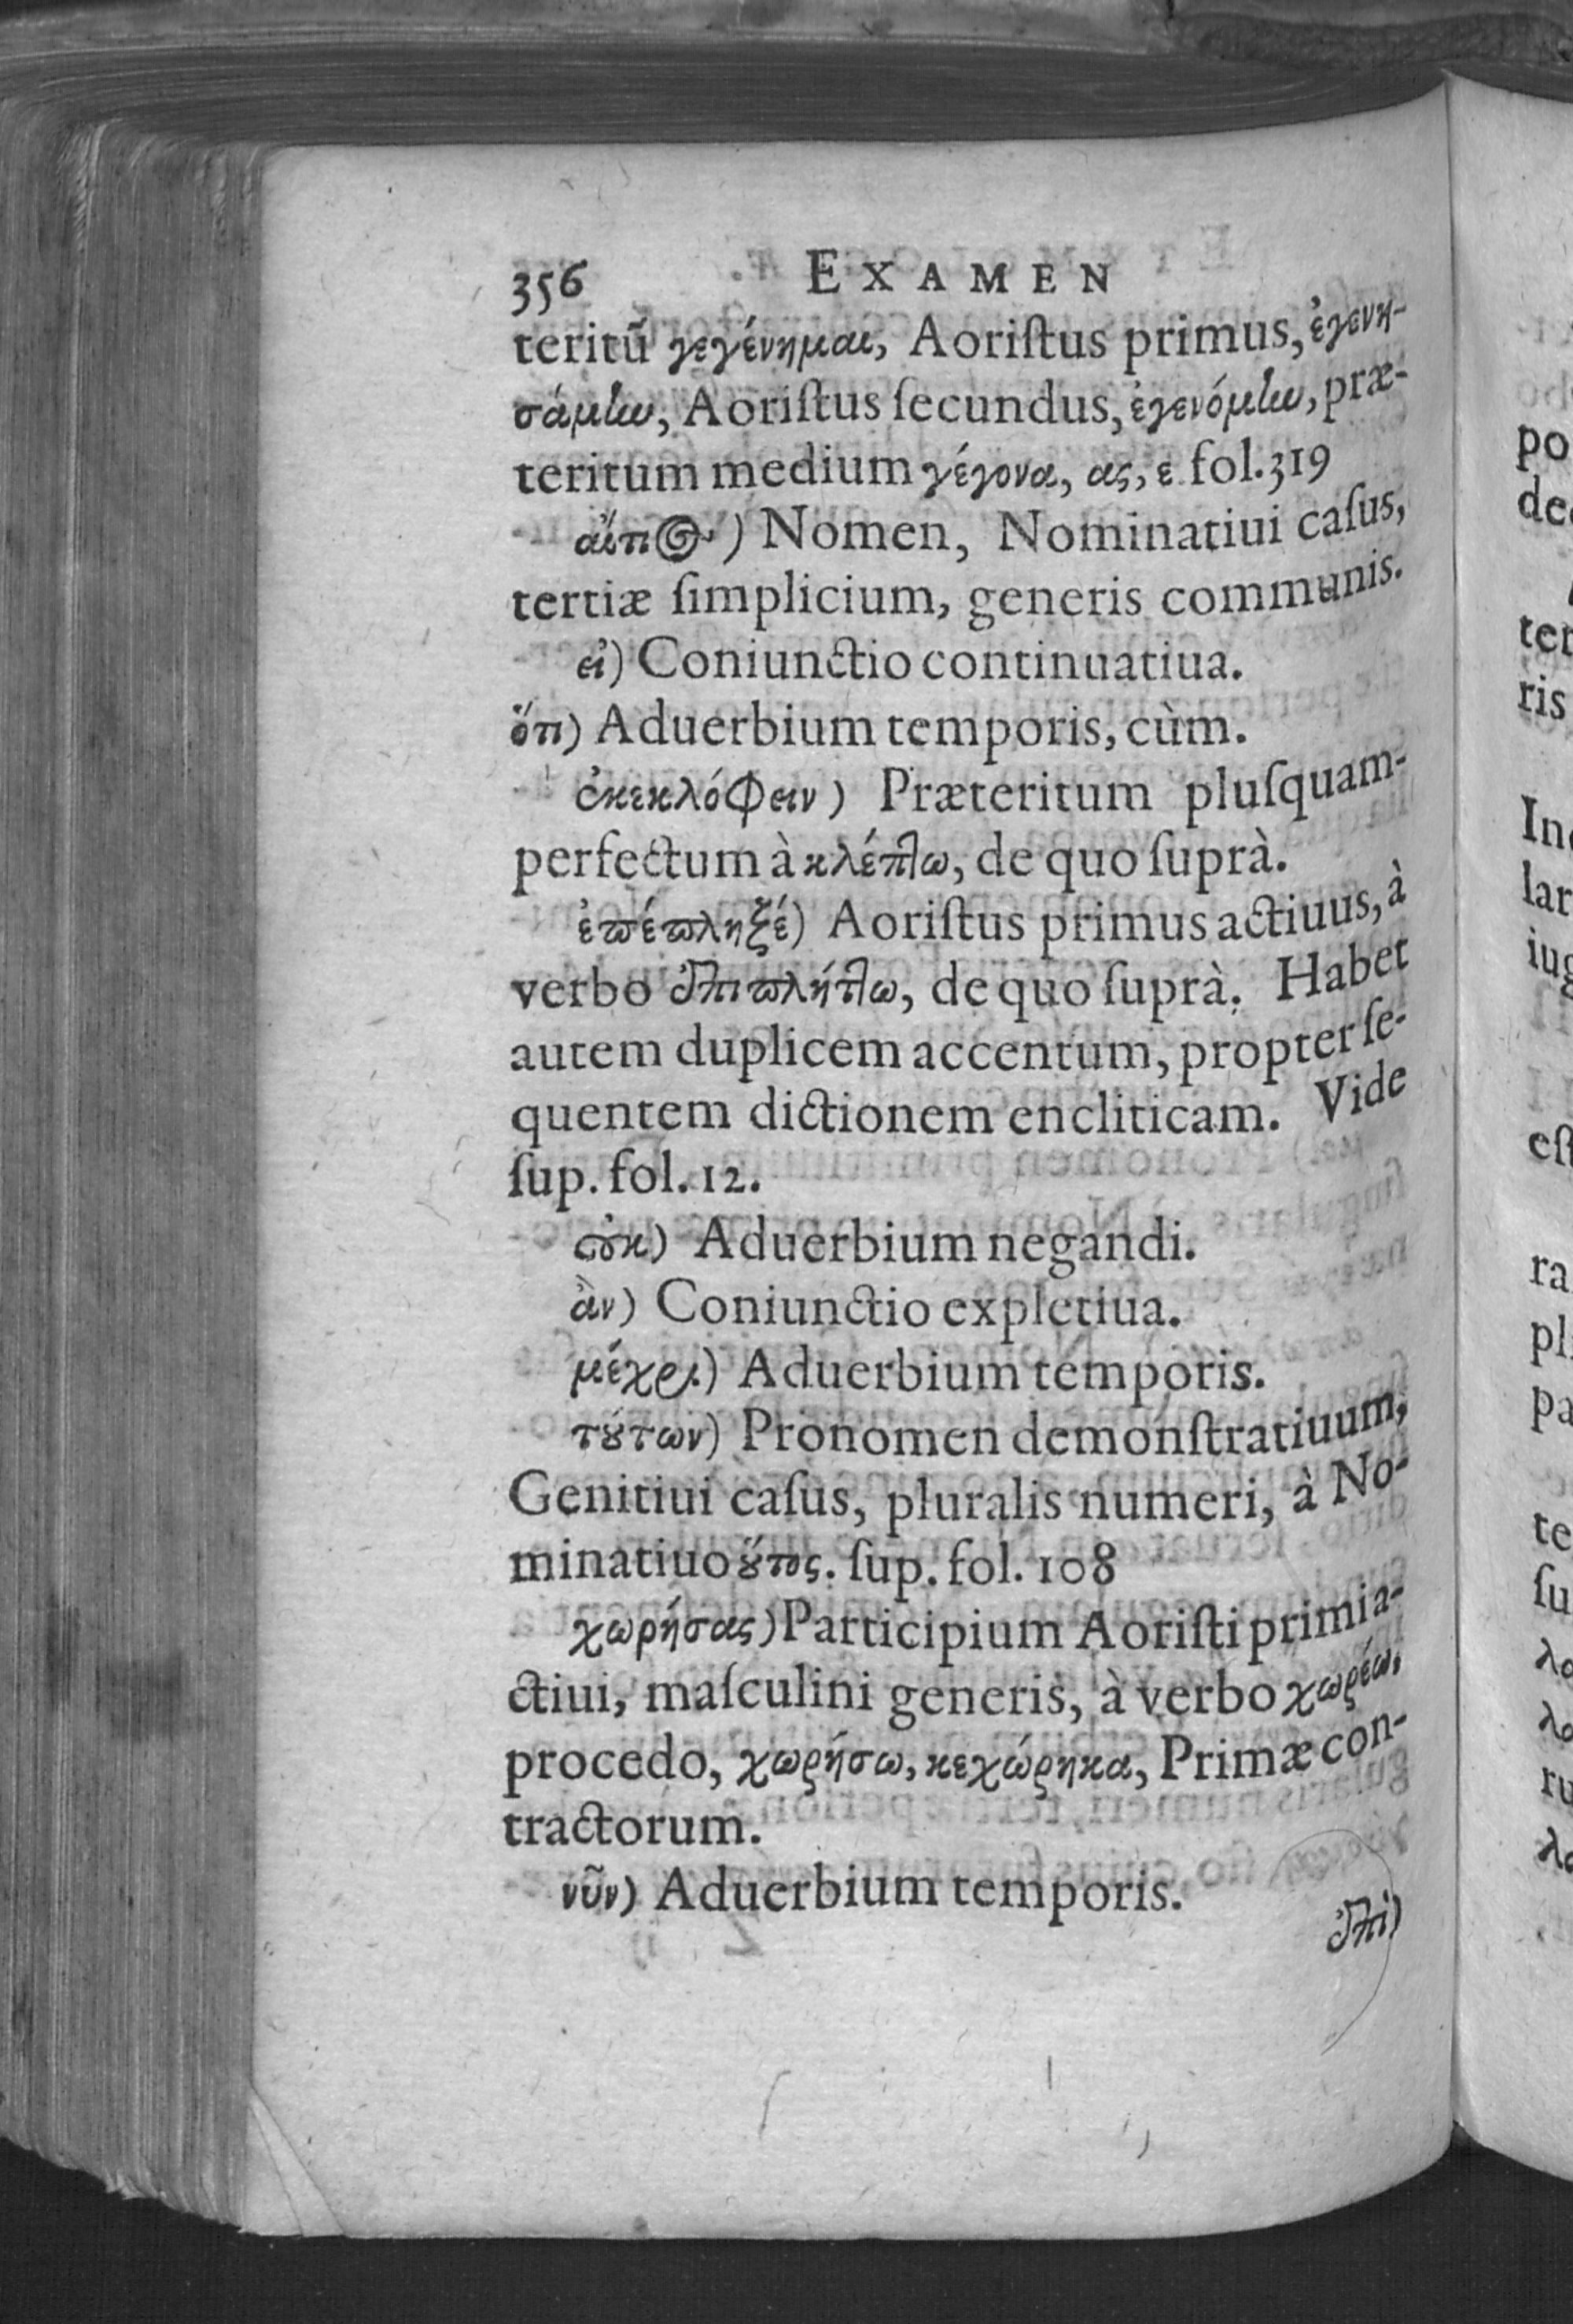 356 EXAMEN
teritũ γεγένημαι, Aoriſtus primus, ἐγενη-
σάμην, Aoriſtus ſecundus, ἐγενόμην, præ-
teritum medium γέγονα, ας, ε fol. 319
αἴτιος) Nomen, Nominatiui caſus,
tertiæ ſimplicium, generis communis.
εἰ) Coniunctio continuatiua.
ὅτι) Aduerbium temporis, cùm.
ἐκεκλόφειν) Præteritum pluſquam-
perfectum à κλέπτω, de quo ſuprà.
ἐπέπληξέ) Aoriſtus primus actiuus, à
verbo ἐπιπλήττω, de quo ſuprà. Habet
autem duplicem accentum, propter ſe-
quentem dictionem encliticam. Vide
ſup. fol. 12.
οὐκ) Aduerbium negandi.
ἂν) Coniunctio expletiua.
μέχρι) Aduerbium temporis.
τούτων) Pronomen demonſtratiuum,
Genitiui caſus, pluralis numeri, à No-
minatiuo οὗτος. ſup. fol. 108
χωρήσας) Participium Aoriſti primi a-
ctiui, maſculini generis, à verbo χωρέω,
procedo, χωρήσω, κεχώρηκα, Primæ con-
tractorum.
νῦν) Aduerbium temporis.
ἐπὶ)
po
ter
ris
lar
iug
eſt
ra
pa
te
ſu